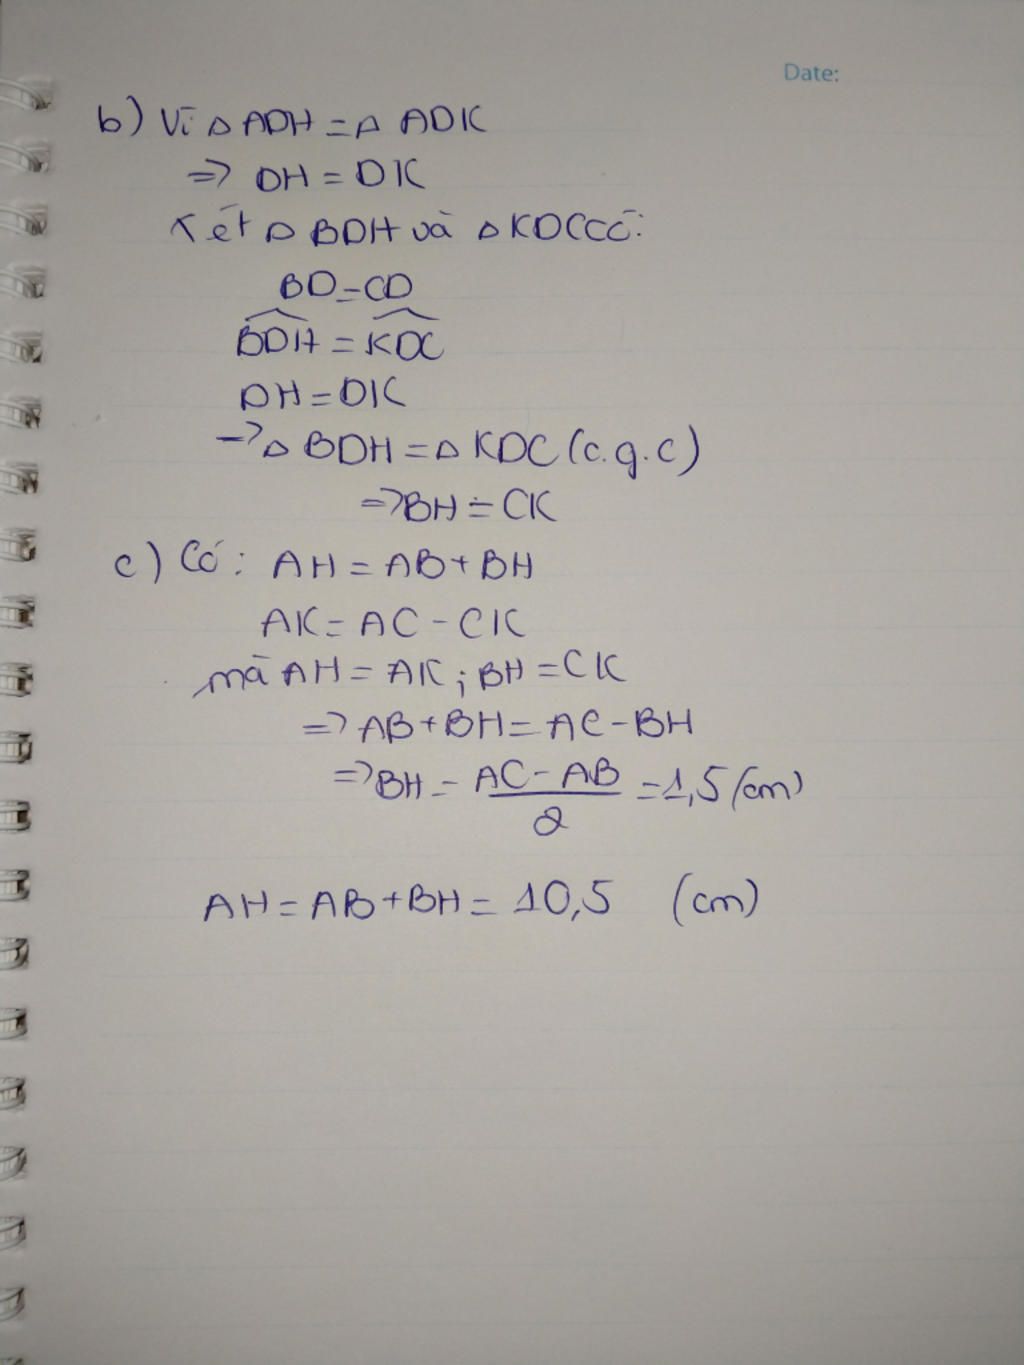 Date:
b) Vì △ ADH = △ ADK
=> DH = DK
Xét △ BDH và △ KDC có:
BD = CD
\widehat{BDH} = \widehat{KDC}
DH = DK
=> △ BDH = △ KDC (c.g.c)
=> BH = CK
c) Có: AH = AB + BH
AK = AC - CK
mà AH = AK ; BH = CK
=> AB + BH = AC - BH
=> BH = \frac{AC - AB}{2} = 1,5 (cm)
AH = AB + BH = 10,5 (cm)